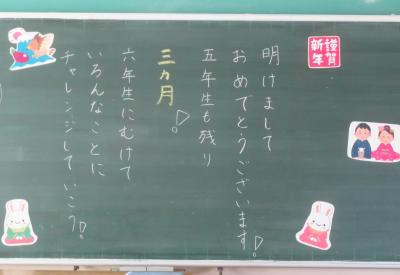 謹賀
新年
明けまして
おめでとうございます!
五年生も残り
三ヵ月!
六年生にむけて
いろんなことに
チャレンジしていこう!